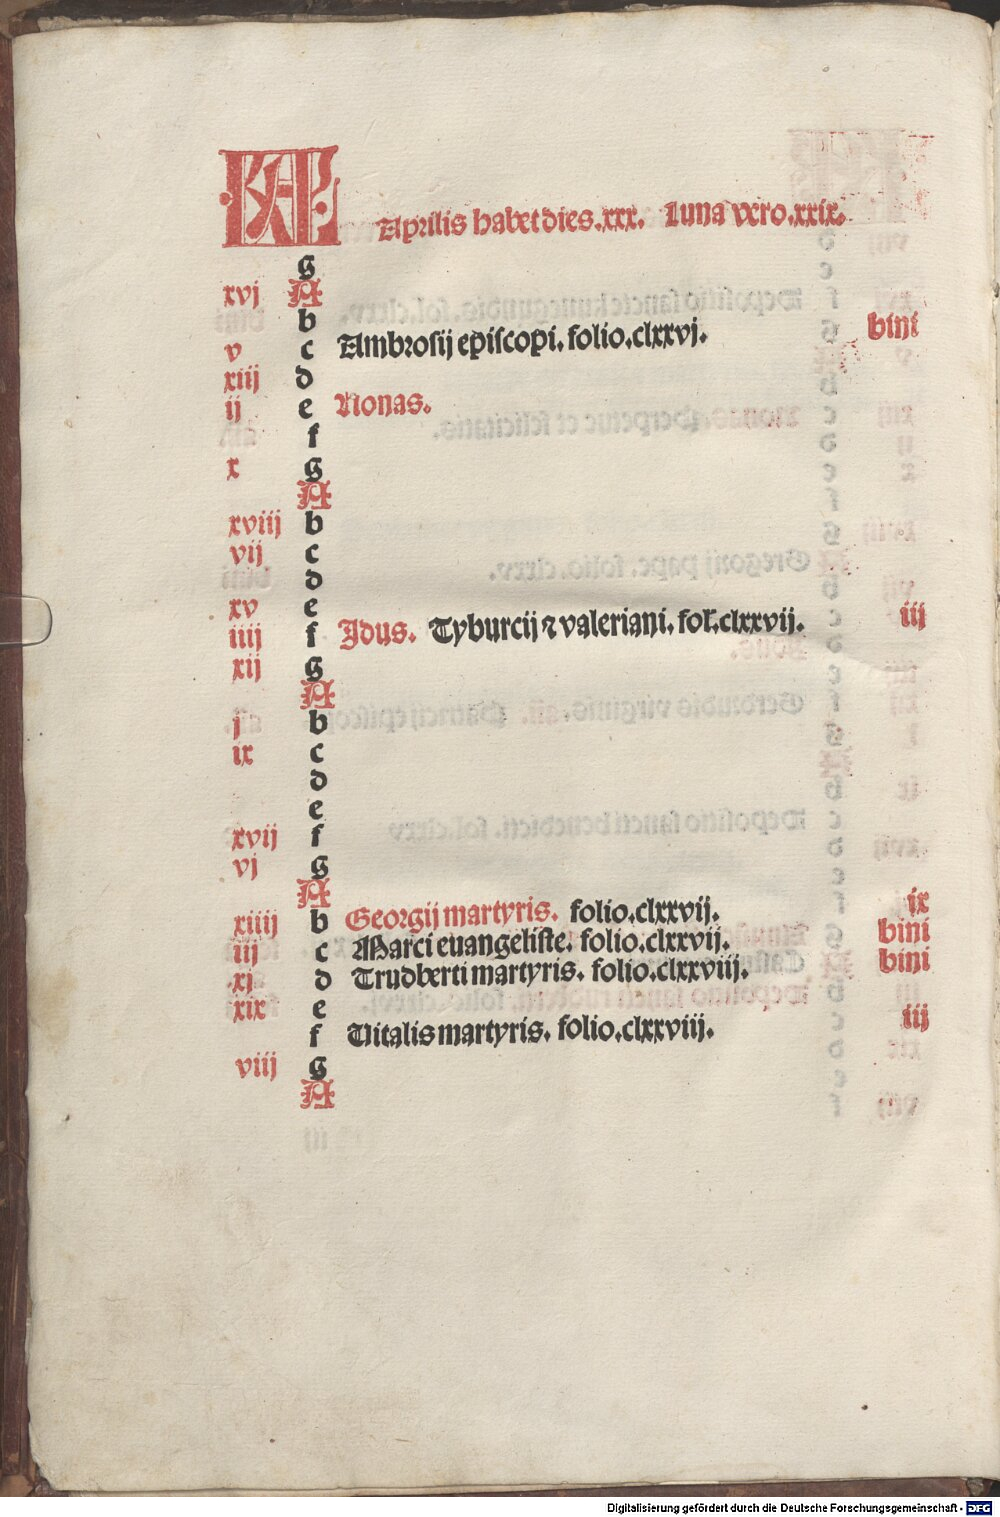 KAL Aprilis habet dies.xxx. Luna vero.xxix.
g
xvj A
b
v c Ambrosij episcopi. folio.clxxvj. bini
xiij d
ij e Nonas.
f
x g
A
xviij b
vij c
d
xv e
iiij f Idus. Tyburcij ⁊ valeriani. fol.clxxvij. iij
xij g
A
j b
ix c
d
e
xvij f
vj g
A
xiiij b Georgij martyris. folio.clxxvij. ix
iij c Marci euangeliste. folio.clxxvij. bini
xj d Trudberti martyris. folio.clxxviij. bini
xix e
f Uitalis martyris. folio.clxxviij. iij
viij g
A
Digitalisierung gefördert durch die Deutsche Forschungsgemeinschaft - DFG